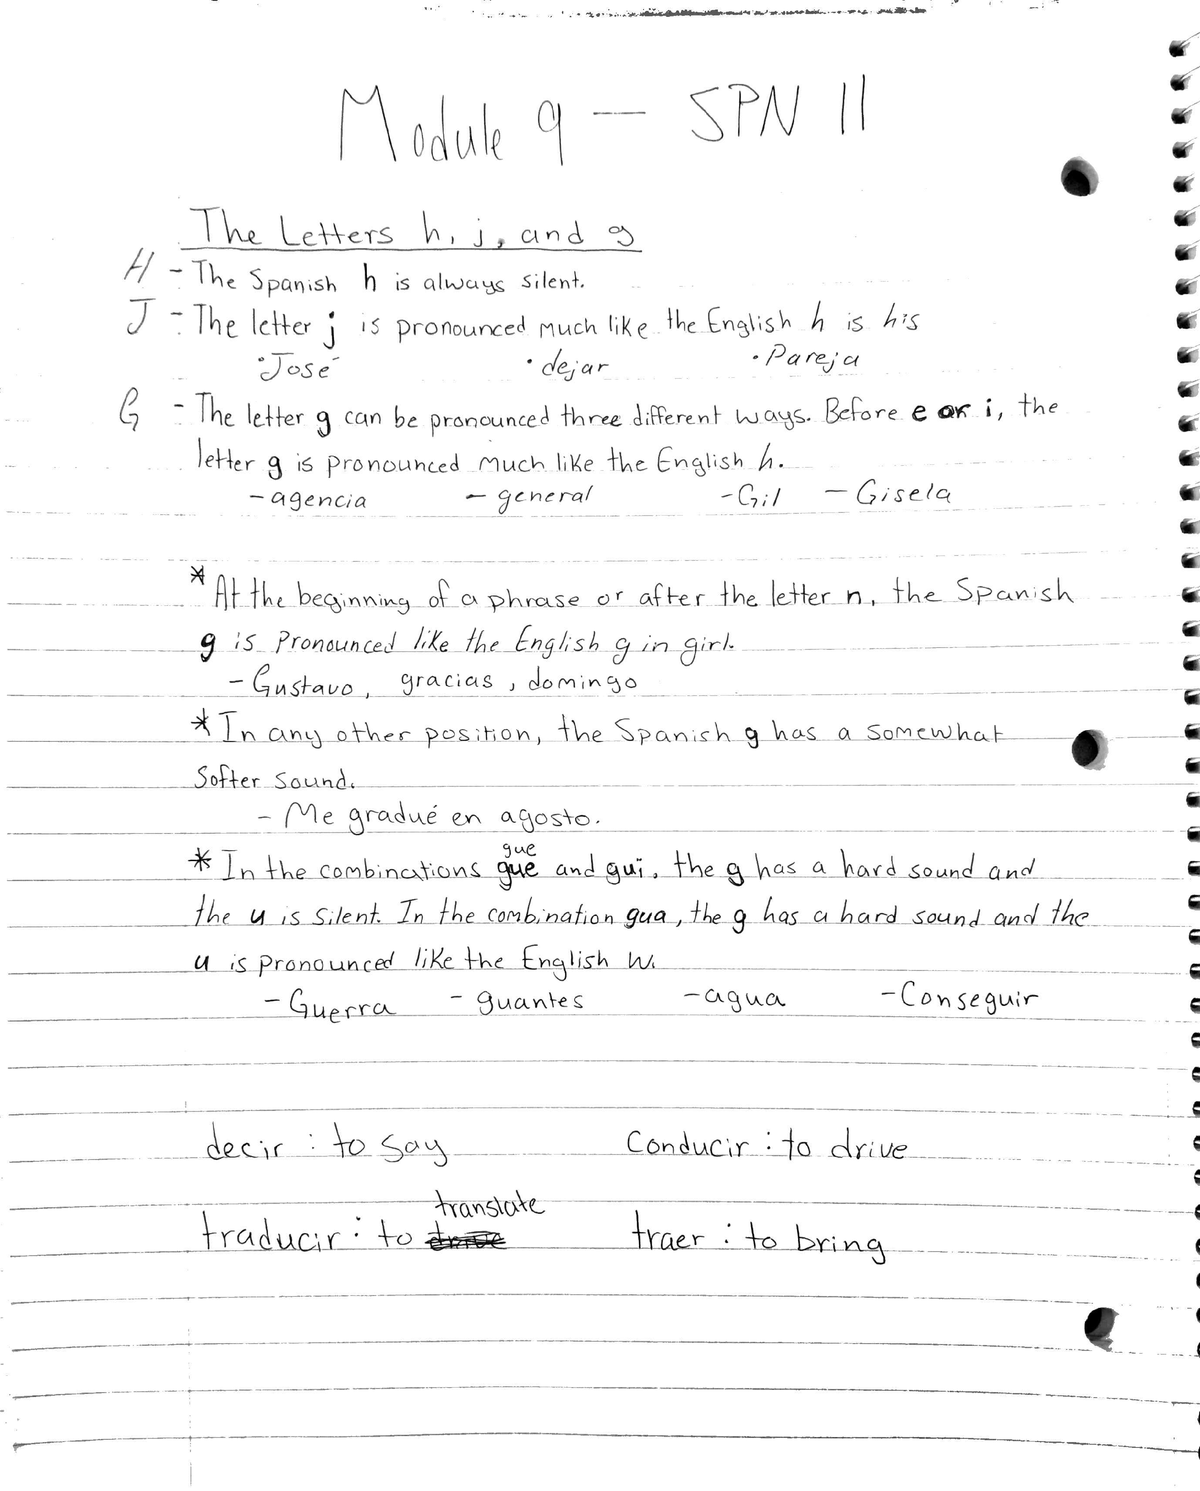 Module 9 — SPN 11
The Letters h, j, and g
H - The Spanish h is always silent.
J - The letter j is pronounced much like the English h is his
• José • dejar • Pareja
G - The letter g can be pronounced three different ways. Before e or i, the
letter g is pronounced much like the English h.
- agencia - general - Gil - Gisela
* At the beginning of a phrase or after the letter n, the Spanish
g is Pronounced like the English g in girl.
- Gustavo, gracias, domingo
* In any other position, the Spanish g has a somewhat
Softer sound.
- Me gradué en agosto.
gue
* In the combinations gue and gui, the g has a hard sound and
the u is silent. In the combination gua, the g has a hard sound and the
u is pronounced like the English w.
- Guerra - guantes - agua - Conseguir
decir : to say Conducir : to drive
translate
traducir : to drive traer : to bring